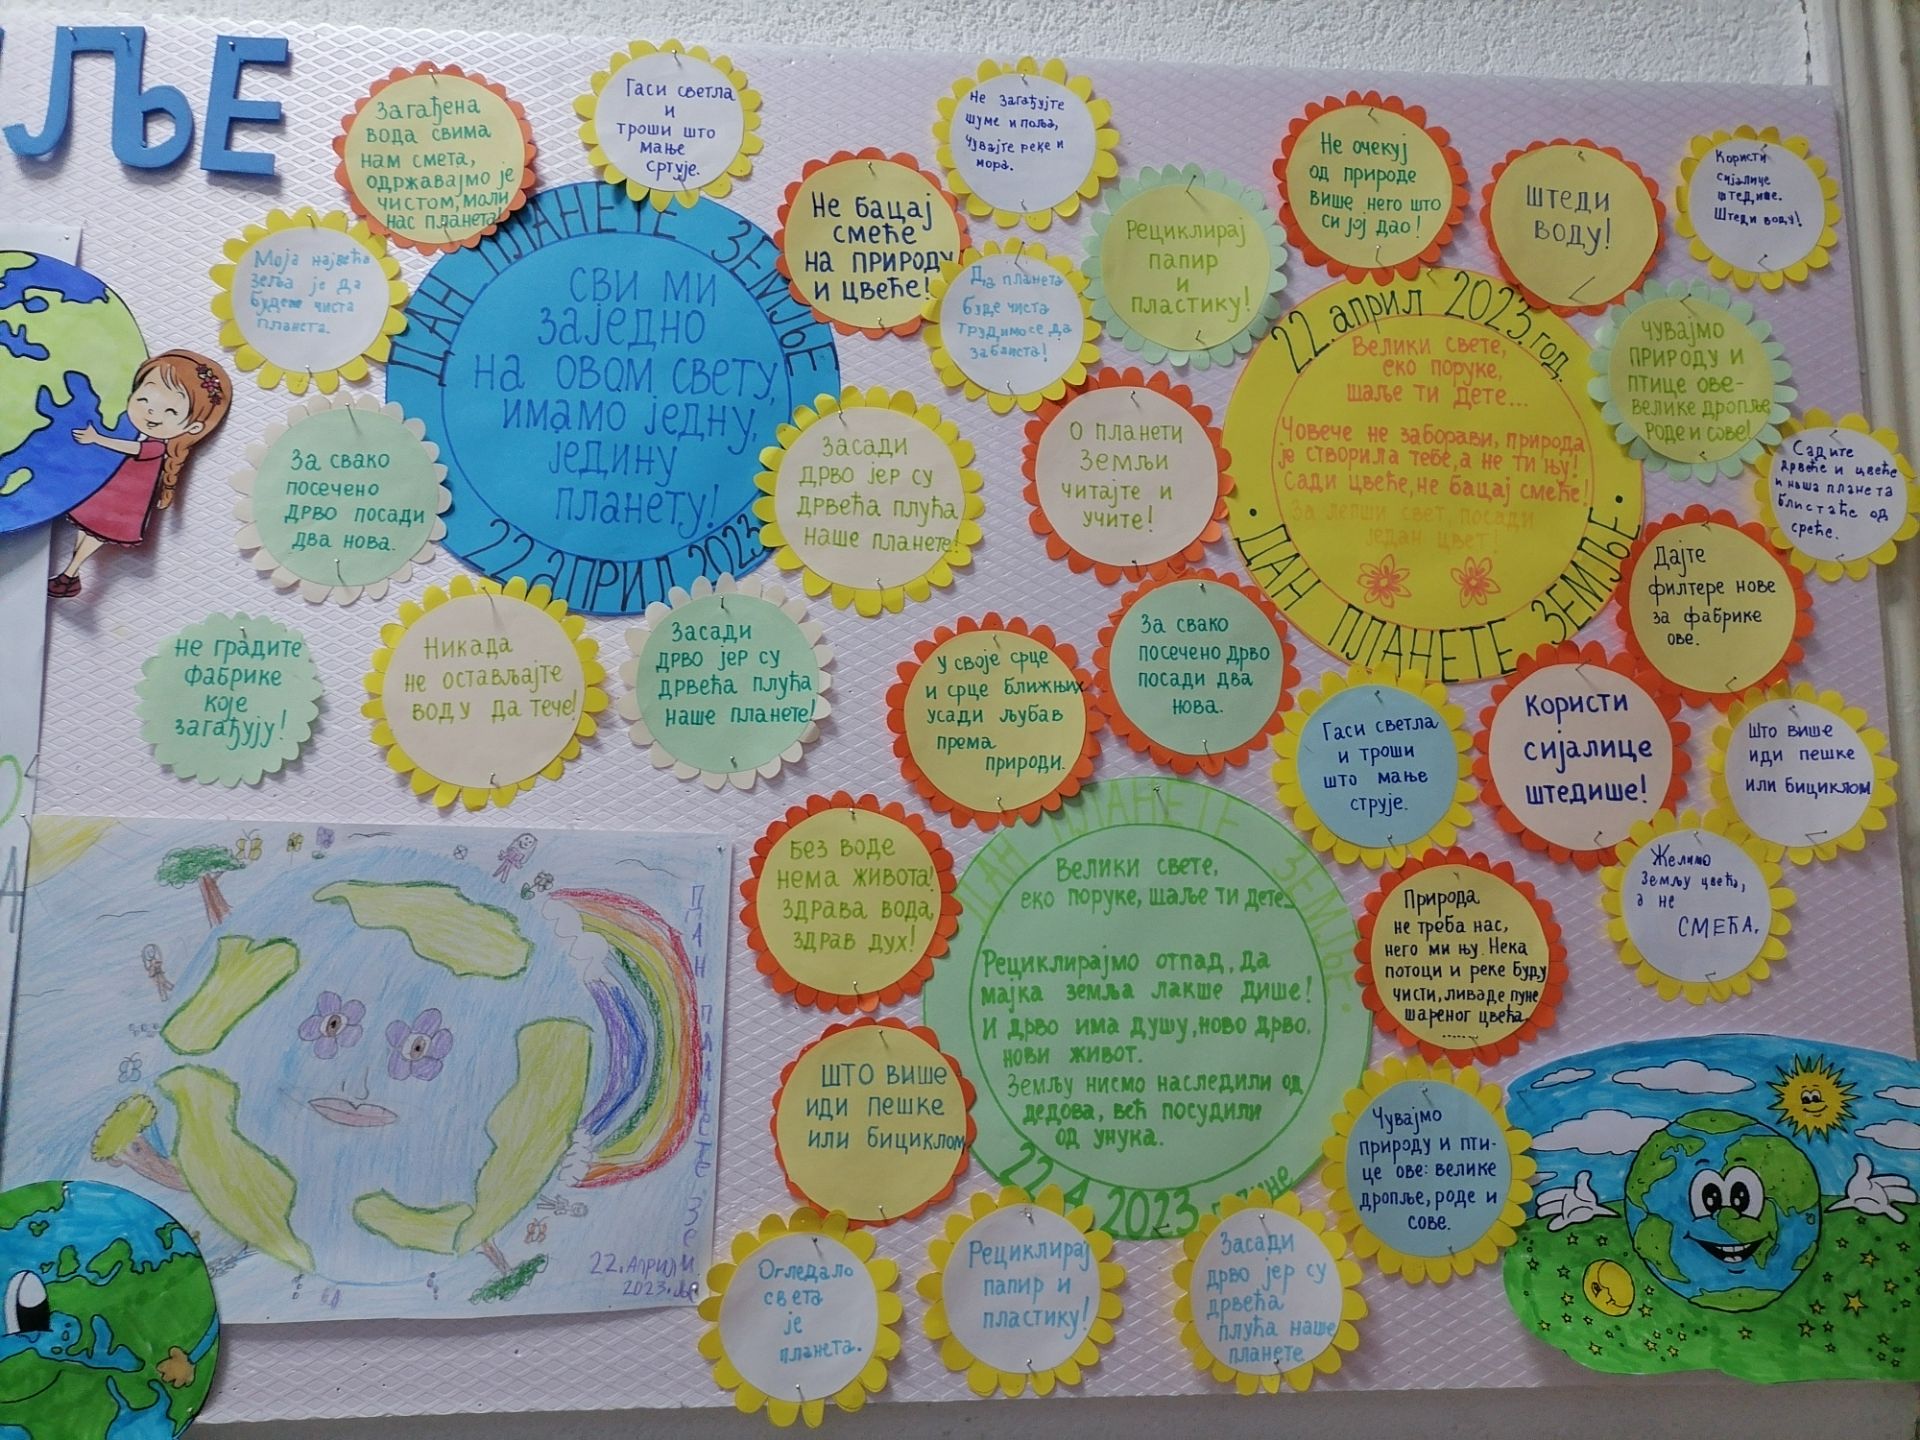 ЉЕ
Загађена
вода свима
нам смета,
одржавајмо је
чистом, моли
нас планета!
Гаси светла
и
троши што
мање
сртује.
Не загађујте
шуме и поља,
чувајте реке и
мора.
Не очекуј
од природе
више него што
си јој дао!
ШТЕДИ
ВОДУ!
Користи
сијалице
штедише.
Штеди воду!
Моја највећа
жеља је да
будете чиста
планета.
ДАН ПЛАНЕТЕ ЗЕМЉЕ
СВИ МИ
заједно
на овом свету,
имамо једну,
једину
планету!
22. април 2023
Не бацај
смеће
на природу
и цвеће!
Да планета
буде чиста
трудимо се да
заблиста!
Рециклирај
папир
и
пластику!
22. април 2023. год.
Велики свете,
еко поруке,
шаље ти дете...
Човече не заборави, природа
је створила тебе, а не ти њу!
Сади цвеће, не бацај смеће!
За лепши свет посади
један цвет!
• ДАН ПЛАНЕТЕ ЗЕМЉЕ •
ЧУВАЈМО
ПРИРОДУ И
ПТИЦЕ ОВЕ-
ВЕЛИКЕ ДРОПЉЕ,
РОДЕ И СОВЕ!
Садите
дрвеће и цвеће
и наша планета
блистаће од
среће.
За свако
посечено
дрво посади
два нова.
Засади
дрво јер су
дрвећа плућа
наше планете!
О планети
Земљи
читајте и
учите!
Дајте
филтере нове
за фабрике
ове.
Не градите
фабрике
које
загађују!
Никада
не остављајте
воду да тече!
Засади
дрво јер су
дрвећа плућа
наше планете!
У своје срце
и срце ближњих
усади љубав
према
природи.
За свако
посечено дрво
посади два
нова.
Гаси светла
и троши
што мање
струје.
Користи
сијалице
штедише!
Што више
иди пешке
или бициклом
Желимо
Земљу цвећа,
а не
СМЕЋА.
Без воде
нема живота!
Здрава вода,
здрав дух!
ДАН ПЛАНЕТЕ ЗЕМЉЕ.
Велики свете,
еко поруке, шаље ти дете...
Рециклирајмо отпад, да
мајка земља лакше дише!
И дрво има душу, ново дрво,
нови живот.
Земљу нисмо наследили од
дедова, већ посудили
од унука.
22. 4. 2023.
Природа
не треба нас,
него ми њу. Нека
потоци и реке буду
чисти, ливаде пуне
шареног цвећа.
......
ШТО ВИШЕ
ИДИ ПЕШКЕ
ИЛИ БИЦИКЛОМ
Чувајмо
природу и пти-
це ове: велике
дропље, роде и
сове.
ДАН ПЛАНЕТЕ ЗЕМЉЕ
22. Април
2023.
Огледало
света
је
планета.
Рециклирај
папир и
пластику!
Засади
дрво јер су
дрвећа
плућа наше
планете